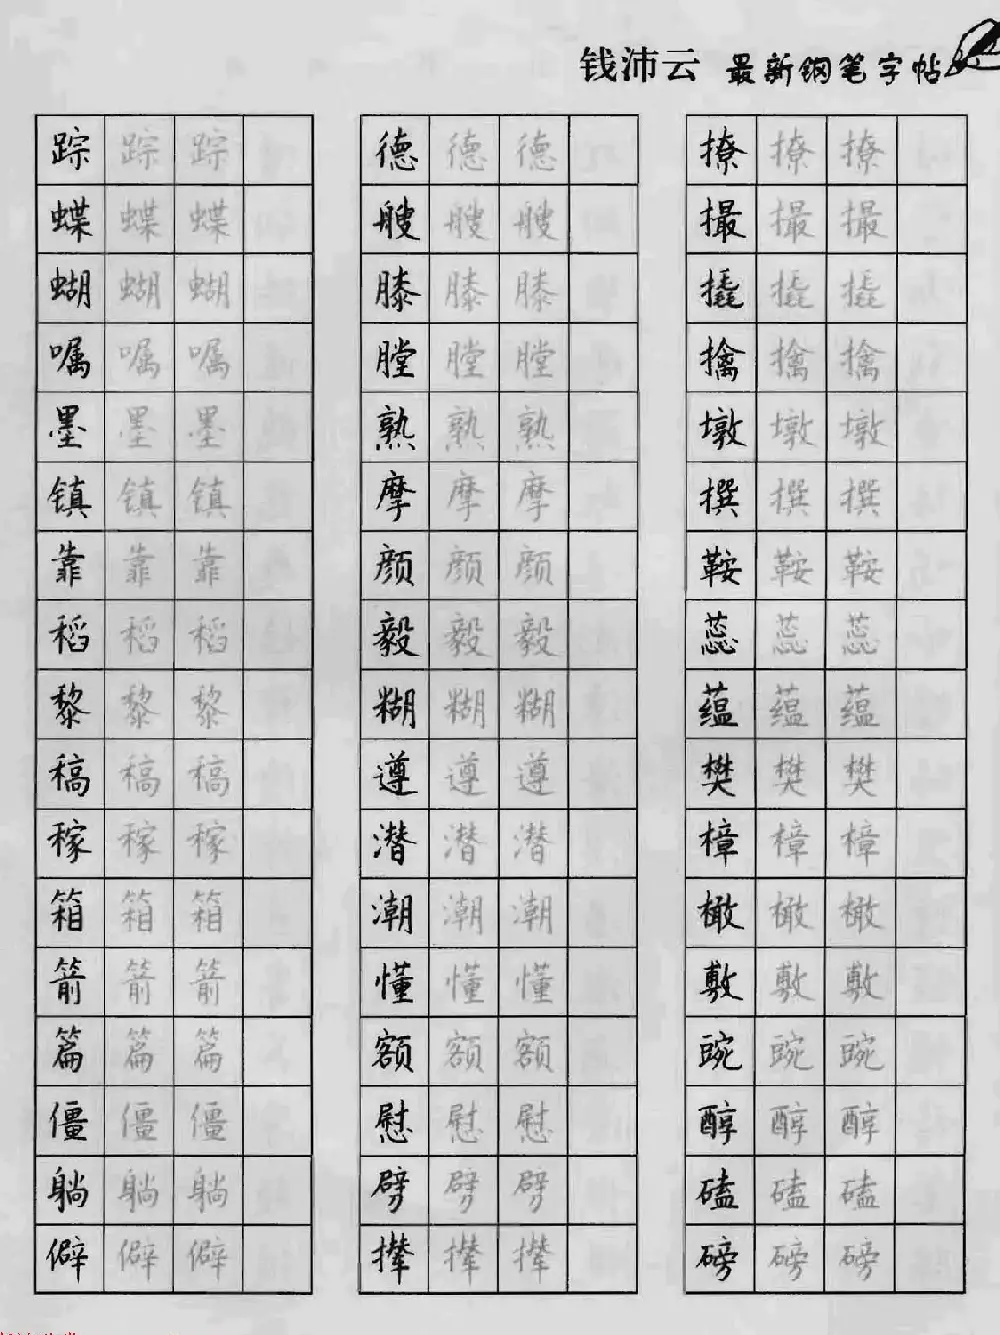 钱沛云 最新钢笔字帖
踪 踪 踪 德 德 德 撩 撩 撩
蝶 蝶 蝶 艘 艘 艘 撮 撮 撮
蝴 蝴 蝴 膝 膝 膝 撬 撬 撬
嘱 嘱 嘱 膛 膛 膛 擒 擒 擒
墨 墨 墨 熟 熟 熟 墩 墩 墩
镇 镇 镇 摩 摩 摩 撰 撰 撰
靠 靠 靠 颜 颜 颜 鞍 鞍 鞍
稻 稻 稻 毅 毅 毅 蕊 蕊 蕊
黎 黎 黎 糊 糊 糊 蕴 蕴 蕴
稿 稿 稿 遵 遵 遵 樊 樊 樊
稼 稼 稼 潜 潜 潜 樟 樟 樟
箱 箱 箱 潮 潮 潮 橄 橄 橄
箭 箭 箭 懂 懂 懂 敷 敷 敷
篇 篇 篇 额 额 额 豌 豌 豌
僵 僵 僵 慰 慰 慰 醇 醇 醇
躺 躺 躺 劈 劈 劈 磕 磕 磕
僻 僻 僻 撵 撵 撵 磅 磅 磅